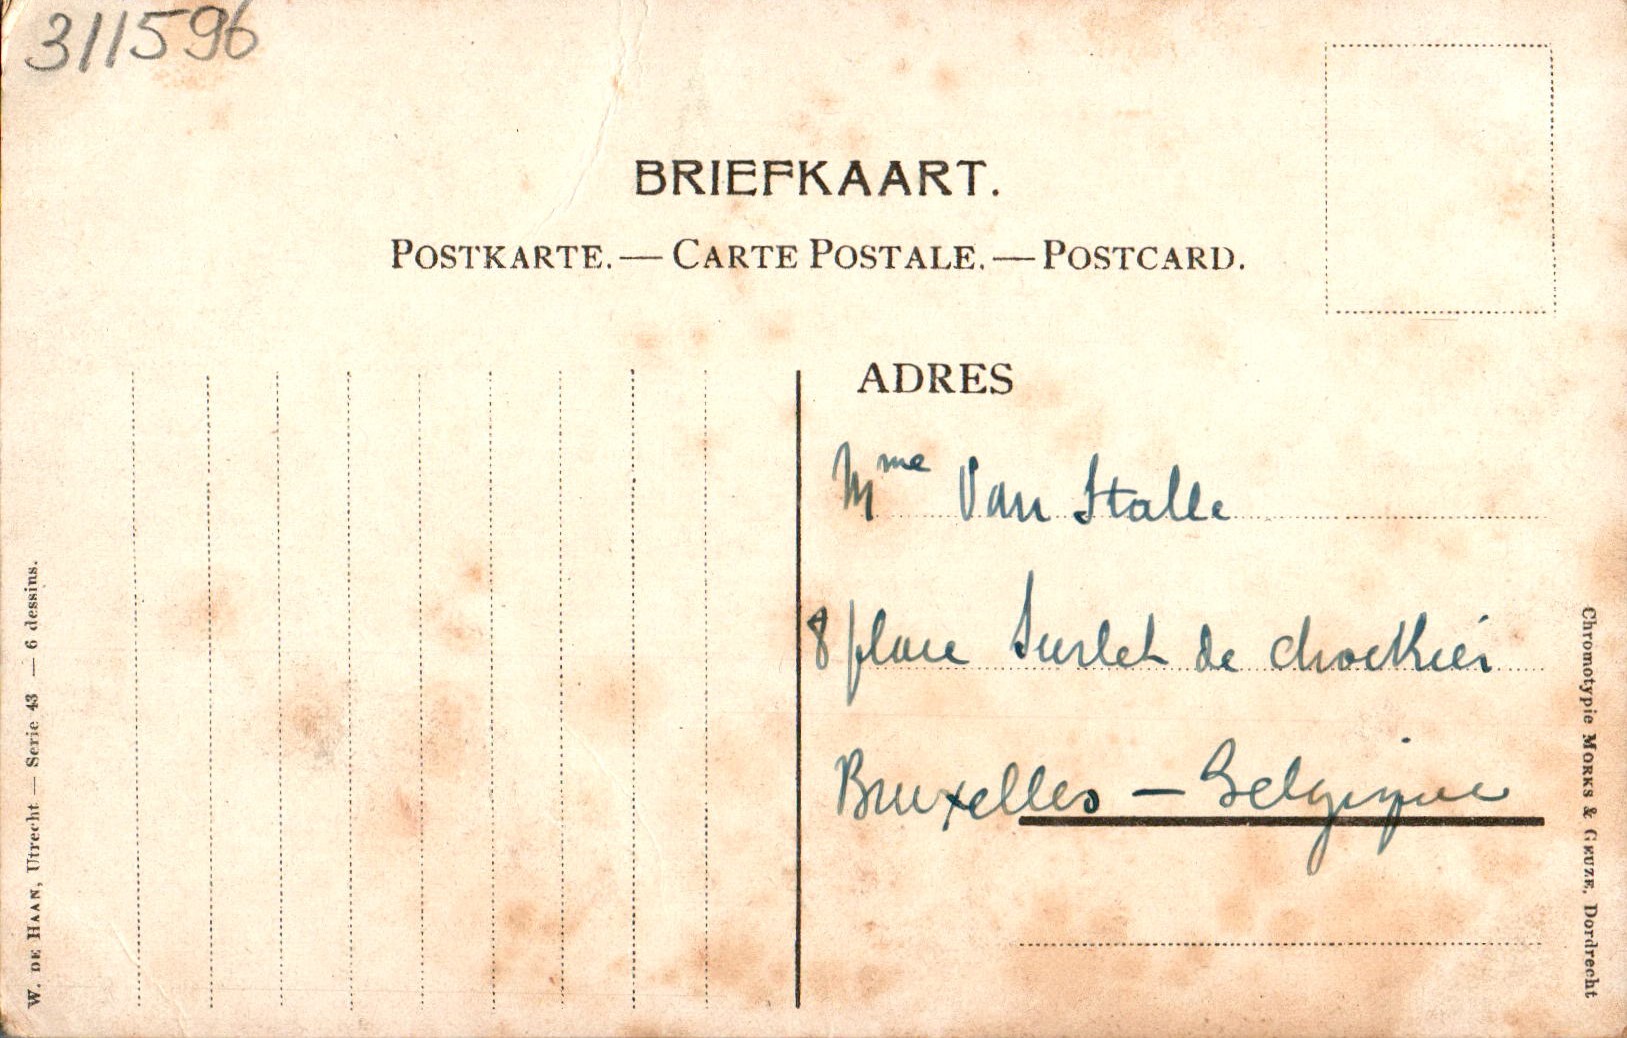 311596
BRIEFKAART.
POSTKARTE. — CARTE POSTALE. — POSTCARD.
ADRES
Mme Van Stalle
8 place Surlet de chockier
Bruxelles — Belgique
W. DE HAAN, Utrecht — Serie 43 — 6 dessins.
Chromotypie MORKS & GEUZE, Dordrecht